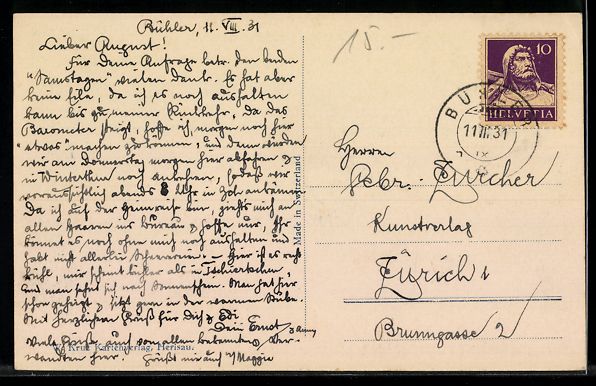 Bühler, 11. VIII. 31
Lieber August!
Für Deine Anfrage betr. den beiden
"Samstagen" vielen Dank. Es hat aber
keine Eile, da ich es noch aushalten
kann bis zu meiner Rückkehr. Da das
Barometer steigt, hoffe ich, morgen noch hier
"etwas" machen zu können, und dann würden
wir am Donnerstag morgen hier abfahren &
in Winterthur noch ankehren, sodass wir
voraussichtlich abends 8 Uhr in Zch ankämen.
Da ich auf der Heimreise bin, zieht's mich an
allen Haaren ins Bureau & hoffe nur, Ihr
könnet es noch ohne mich noch aushalten und
habt nicht allerlei Scherereien. - Hier ist es recht
kühl, mir scheint kühler als in Tschiertschen,
und man sehnt sich nach Sonnenschein. Man hat hier
schon geheizt & sitzt gern in der warmen Stube.
Mit herzlichem Gruß für Dich & Edi
Dein Ernst & Anny
Viele Grüße auch von allen Bekannten & Ver-
wandten hier. Grüßt mir auch Maggie
Krüsi Kartenverlag, Herisau.
Made in Switzerland
15.-
10
HELVETIA
BÜHLER
11.VIII.31
IX
Herren
Gebr. Zürcher
Kunstverlag
Zürich 1
Brunngasse 2